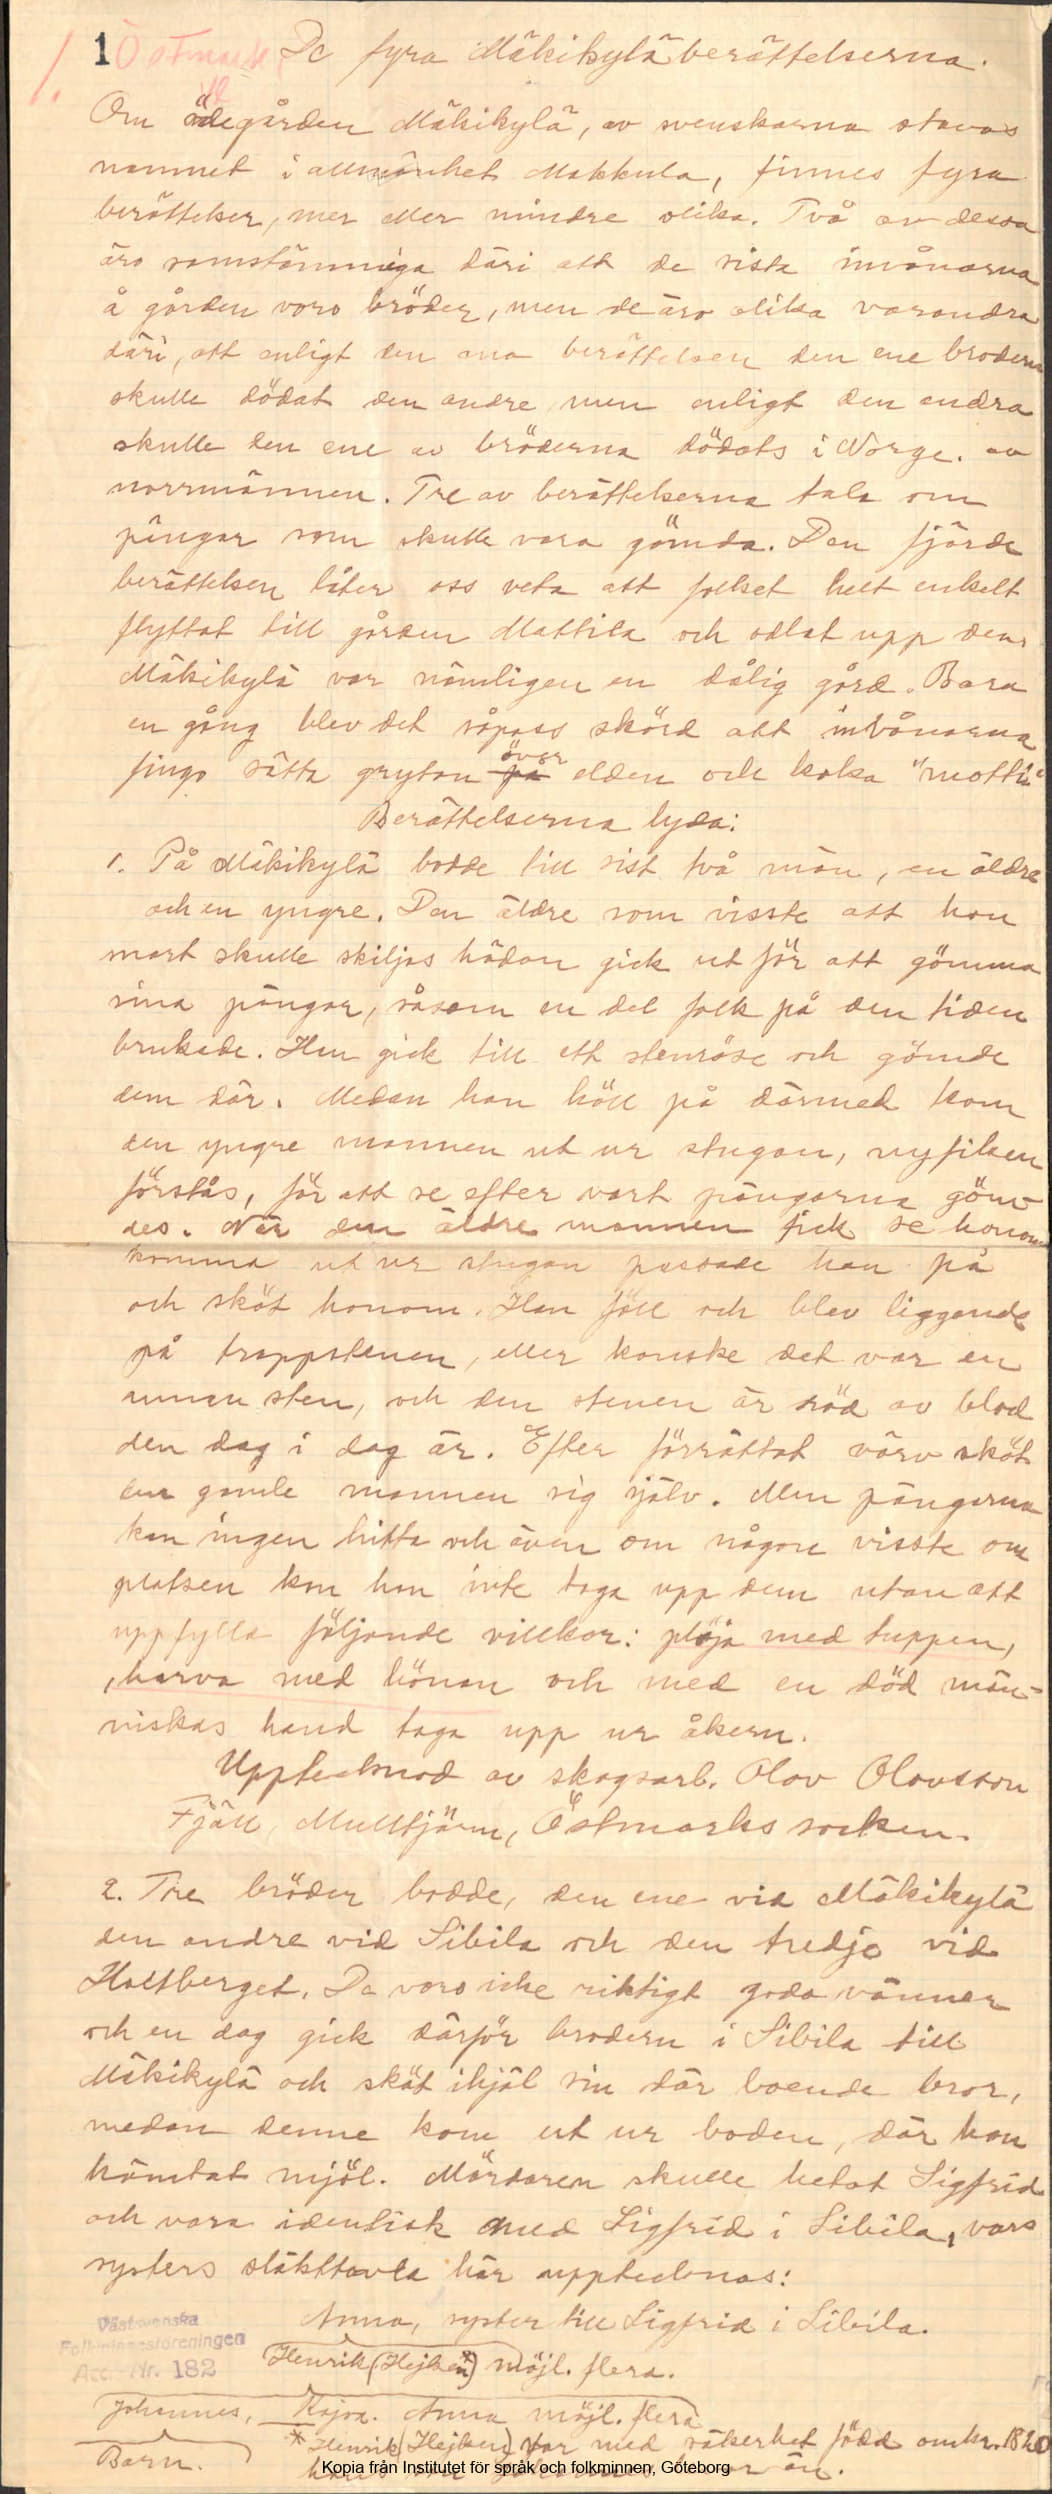 1 Östmark De fyra Mäkikyläberättelserna.
Om ödegården Mäkikylä, av svenskarna stavas
namnet i allmänhet Makkula, finnes fyra
berättelser, mer eller mindre olika. Två av dessa
äro samstämmiga däri att de sista invånarna
å gården voro bröder, men de äro olika varandra
däri, att enligt den ena berättelsen den ene brodern
skulle dödat den andre men enligt den andra
skulle den ene av bröderna dödats i Norge. av
norrmännen. Tre av berättelserna tala om
pängar som skulle vara gömda. Den fjärde
berättelsen låter oss veta att folket helt enkelt
flyttat till gården Mattila och odlat upp den,
Mäkikylä var nämligen en dålig gård. Bara
en gång blev det såpass skörd att invånarna
över
fingo sätta grytan på elden och koka "motti"
Berättelserna lyda:
1. På Mäkikylä bodde till sist två män, en äldre
och en yngre. Den äldre som visste att han
snart skulle skiljas hädan gick ut för att gömma
sina pängar, såsom en del folk på den tiden
brukade. Han gick till ett stenröse och gömde
dem där. Medan han höll på därmed kom
den yngre mannen ut ur stugan, nyfiken
förstås, för att se efter vart pängarna göm-
des. När den äldre mannen fick se honom
komma ut ur stugan passade han på
och sköt honom. Han föll och blev liggande
på trappstenen, eller kanske det var en
annan sten, och den stenen är röd av blod
den dag i dag är. Efter förrättat värv sköt
den gamle mannen sig själv. Men pängarna
kan ingen hitta och även om någon visste om
platsen kan han inte taga upp dem utan att
uppfylla följande villkor: plöja med tuppen,
harva med hönan och med en död män-
niskas hand taga upp ur åkern.
Upptecknad av skogsarb. Olov Olovsson
Fjäll, Mulltjärn, Östmarks socken.
2. Tre bröder bodde, den ene vid Mäkikylä
den andre vid Sibila och den tredje vid
Holtberget. De voro icke riktigt goda vänner
och en dag gick därför brodern i Sibila till
Mäkikylä och sköt ihjäl sin där boende bror,
medan denne kom ut ur boden, där han
hämtat mjöl. Mördaren skulle hetat Sigfrid
och vara identisk med Sigfrid i Sibila, vars
systers släkttavla här upptecknas:
Anna, syster till Sigfrid i Sibila.
Henrik (Hejken*) möjl. flera.
Johannes, Kajsa. Anna möjl. flera
* Henrik (Hejken) var med säkerhet född omkr. 1820
Barn.
Västsvenska
Folkminnesföreningen
Acc. Nr. 182
Kopia från Institutet för språk och folkminnen, Göteborg